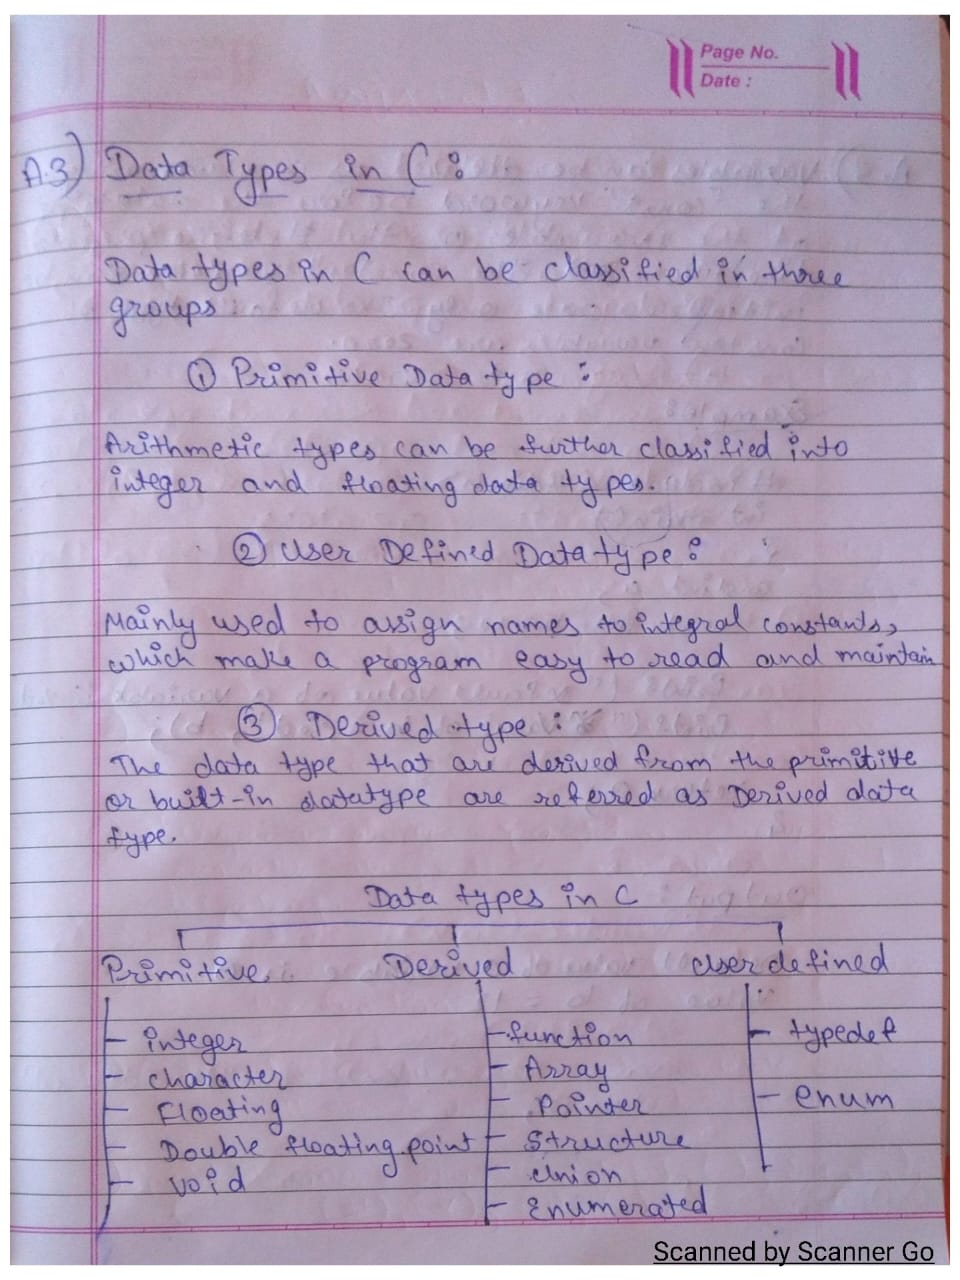 Page No.
Date :
A.3) Data Types in C :
Data types in C can be classified in three
groups
① Primitive Data type :
Arithmetic types can be further classified into
integer and floating data types.
② User Defined Data type :
Mainly used to assign names to integral constants,
which make a program easy to read and maintain
③ Derived type :
The data type that are derived from the primitive
or built-in datatype are referred as Derived data
type.
Data types in C
Primitive Derived User defined
integer function typedef
character Array
Floating Pointer enum
Double floating point Structure
void Union
Enumerated
Scanned by Scanner Go